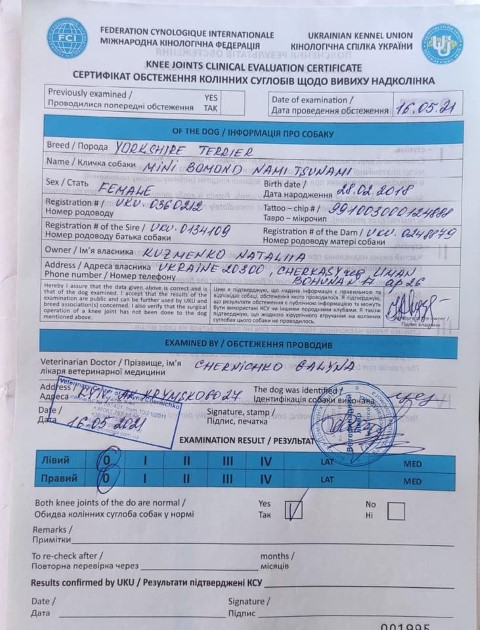 FCI
FEDERATION CYNOLOGIQUE INTERNATIONALE
МІЖНАРОДНА КІНОЛОГІЧНА ФЕДЕРАЦІЯ
UKRAINIAN KENNEL UNION
КІНОЛОГІЧНА СПІЛКА УКРАЇНИ
KNEE JOINTS CLINICAL EVALUATION CERTIFICATE
СЕРТИФІКАТ ОБСТЕЖЕННЯ КОЛІННИХ СУГЛОБІВ ЩОДО ВИВИХУ НАДКОЛІНКА
Previously examined / YES
Проводилися попередні обстеження ТАК
Date of examination /
Дата проведення обстеження 16.05.21
OF THE DOG / ІНФОРМАЦІЯ ПРО СОБАКУ
Breed / Порода YORKSHIRE TERRIER
Name / Кличка собаки MINI BOMOND NAMI TSUNAMI
Sex / Стать FEMALE
Birth date /
Дата народження 28.02.2018
Registration # / UKU. 0360212
Номер родоводу
Tattoo – chip # /
Тавро – мікрочип
Registration # of the Sire / UKU. 0134109
Номер родоводу батька собаки
Registration # of the Dam / UKU
Номер родоводу матері собаки
Owner / Ім'я власника KUZMENKO NATALIIA
Address / Адреса власника UKRAINE 20300, CHERKASY UMAN
Phone number / Номер телефону ap 26
Hereby I assure that the data given above is correct and is that of the dog examined. I accept that the results of the examination are public and can be further used by UKU and breed association(s) concerned. I also verify that the surgical operation of a knee joint has not been done to the dog mentioned above.
EXAMINED BY / ОБСТЕЖЕННЯ ПРОВОДИВ
Veterinarian Doctor / Прізвище, ім'я
лікаря ветеринарної медицини CHERNICHKO GALYNA
Address /
Адреса KYIV
The dog was identified /
Ідентифікація собаки виконана
Date /
Дата 16-05-2021
Signature, stamp /
Підпис, печатка
EXAMINATION RESULT / РЕЗУЛЬТАТ
Лівий 0 I II III IV LAT MED
Правий 0 I II III IV LAT MED
Both knee joints of the do are normal /
Обидва колінних суглоба собак у нормі
Yes
Так
No
Ні
Remarks /
Примітки
To re-check after /
Повторна перевірка через
months /
місяців
Results confirmed by UKU / Результати підтверджені КСУ
Date /
Дата
Signature /
Підпис
001995